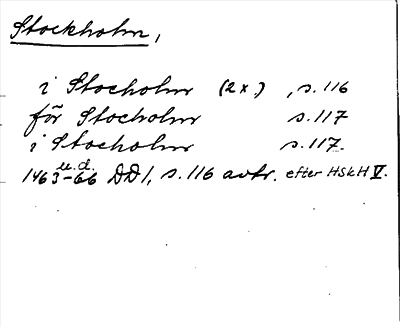 Stockholm,
i Stocholm (2x.) , s. 116
för Stocholm s. 117
i Stocholm s. 117.
u.d.
1463-66 DD1, s. 116 avtr. efter HSkH V.